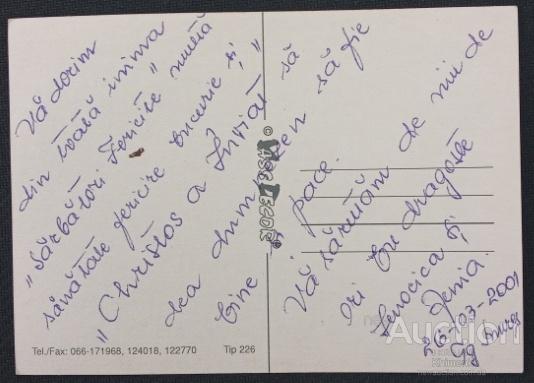 Vă dorim
din toată inima
"Sărbători Fericite" multă
sănătate fericire bucurie și
"Christos a Înviat"
dea Dumnezeu să
bine și pace. să fie
Vă sărutăm de mii de
ori cu dragoste
Lenocica și
Jenia.
26-03-2001
VASE DECOR
Tel./Fax: 066-171968, 124018, 122770 Tip 226
Auction